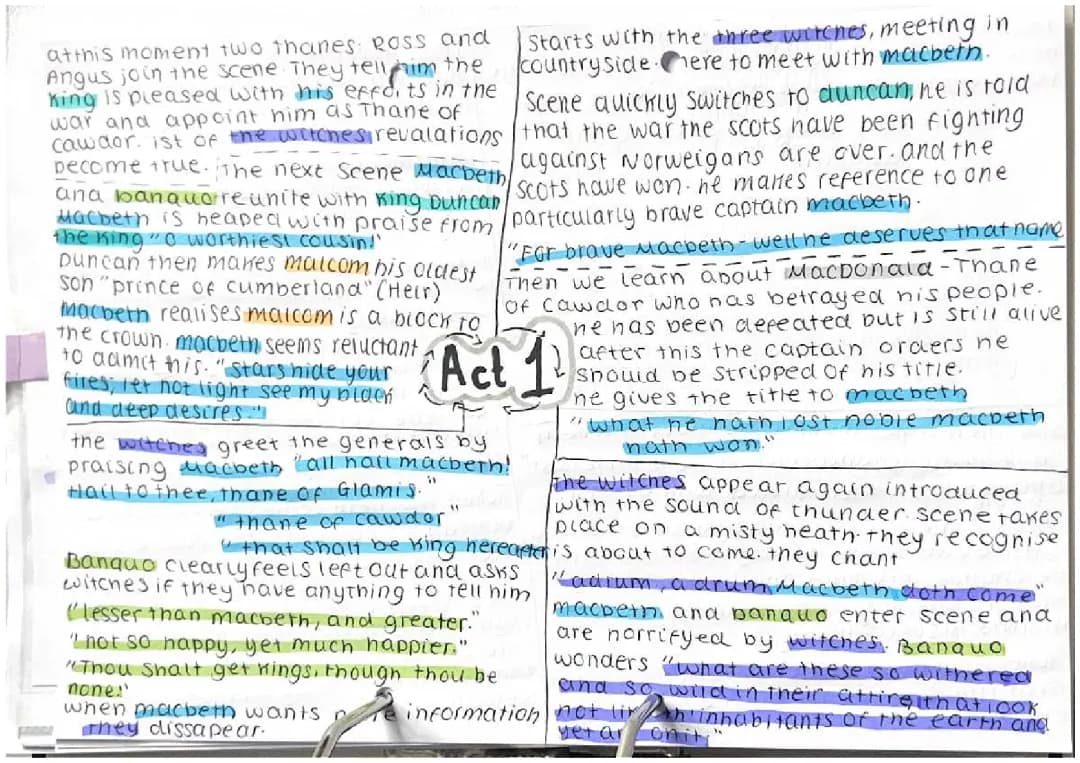 at this moment two thanes: Ross and
Angus join the scene. They tell him the
King is pleased with his efforts in the
war and appoint him as Thane of
cawdor. 1st of the witches revalations
become true. The next scene Macbeth
and banquo reunite with King Duncan
Macbeth is heaped with praise from
the King "O worthiest cousin!"
Duncan then makes malcom his oldest
son "prince of cumberland" (Heir)
Macbeth realises malcom is a block to
the crown. macbeth seems reluctant
to admit this. "Stars hide your
fires; let not light see my black
and deep desires."
Act 1
the witches greet the generals by
praising Macbeth "all hail macbeth!
Hail to thee, thane of Glamis."
"thane of cawdor"
"that shalt be King hereafter
Banquo clearly feels left out and asks
witches if they have anything to tell him
"lesser than macbeth, and greater."
"not so happy, yet much happier."
"Thou shalt get kings, though thou be
none:"
when macbeth wants more information
They dissapear.
Starts with the three witches, meeting in
countryside. here to meet with macbeth.
Scene quickly switches to duncan, he is told
that the war the scots have been fighting
against Norweigans are over. and the
scots have won. he makes reference to one
particularly brave captain macbeth.
"For brave Macbeth - well he deserves that name
Then we learn about MacDonald - Thane
of Cawdor who has betrayed his people.
he has been defeated but is still alive
after this the captain orders he
should be stripped of his title.
he gives the title to macbeth
"what he hath lost noble macbeth
hath won."
The witches appear again introduced
with the sound of thunder. scene takes
place on a misty heath. they recognise
is about to come. they chant
"a drum, a drum, Macbeth doth come"
macbeth and banquo enter scene and
are horrifyed by witches. Banquo
wonders "what are these so withered
and so wild in their attire, that look
not like th'inhabitants of the earth and
yet are on it."